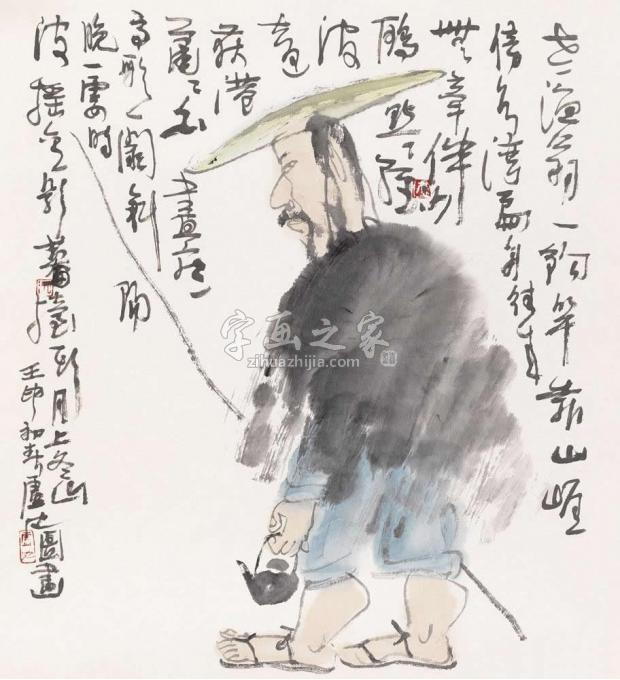 老渔翁一钓竿靠山崖
傍水湾扁舟往来
无牵伴沙
鸥点点轻
波
远
荻港
萧萧白
昼寒
高歌一阕斜
阳
晚一霎时
波摇金影蓦抬头月上东山
卯初春
画
字画之家
zihuazhijia.com